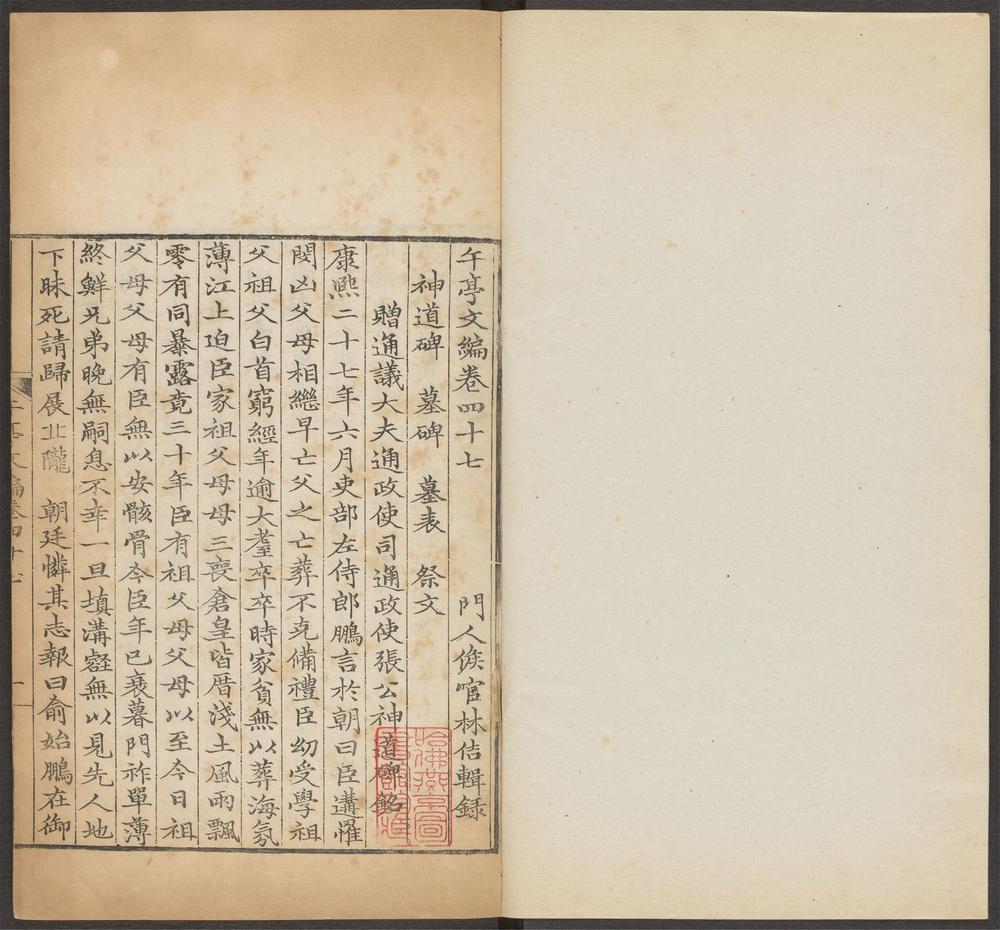 午亭文編卷四十七
門人候官林佶輯錄
神道碑　墓碑　墓表　祭文
贈通議大夫通政使司通政使張公神道碑銘
康熙二十七年六月吏部左侍郎鵬言於朝曰臣遘罹
閔凶父母相繼早亡父之亡葬不克備禮臣幼受學祖
父祖父白首窮經年逾大耋卒卒時家貧無以葬海氛
薄江上迫臣家祖父母母三喪倉皇皆厝淺土風雨飄
零有同暴露竟三十年臣有祖父母父母以至今日祖
父母父母有臣無以安骸骨今臣年已衰暮門祚單薄
終鮮兄弟晚無嗣息不幸一旦填溝壑無以見先人地
下昧死請歸展丘隴　朝廷憐其志報曰俞始鵬在御
午亭文編卷四十七
一